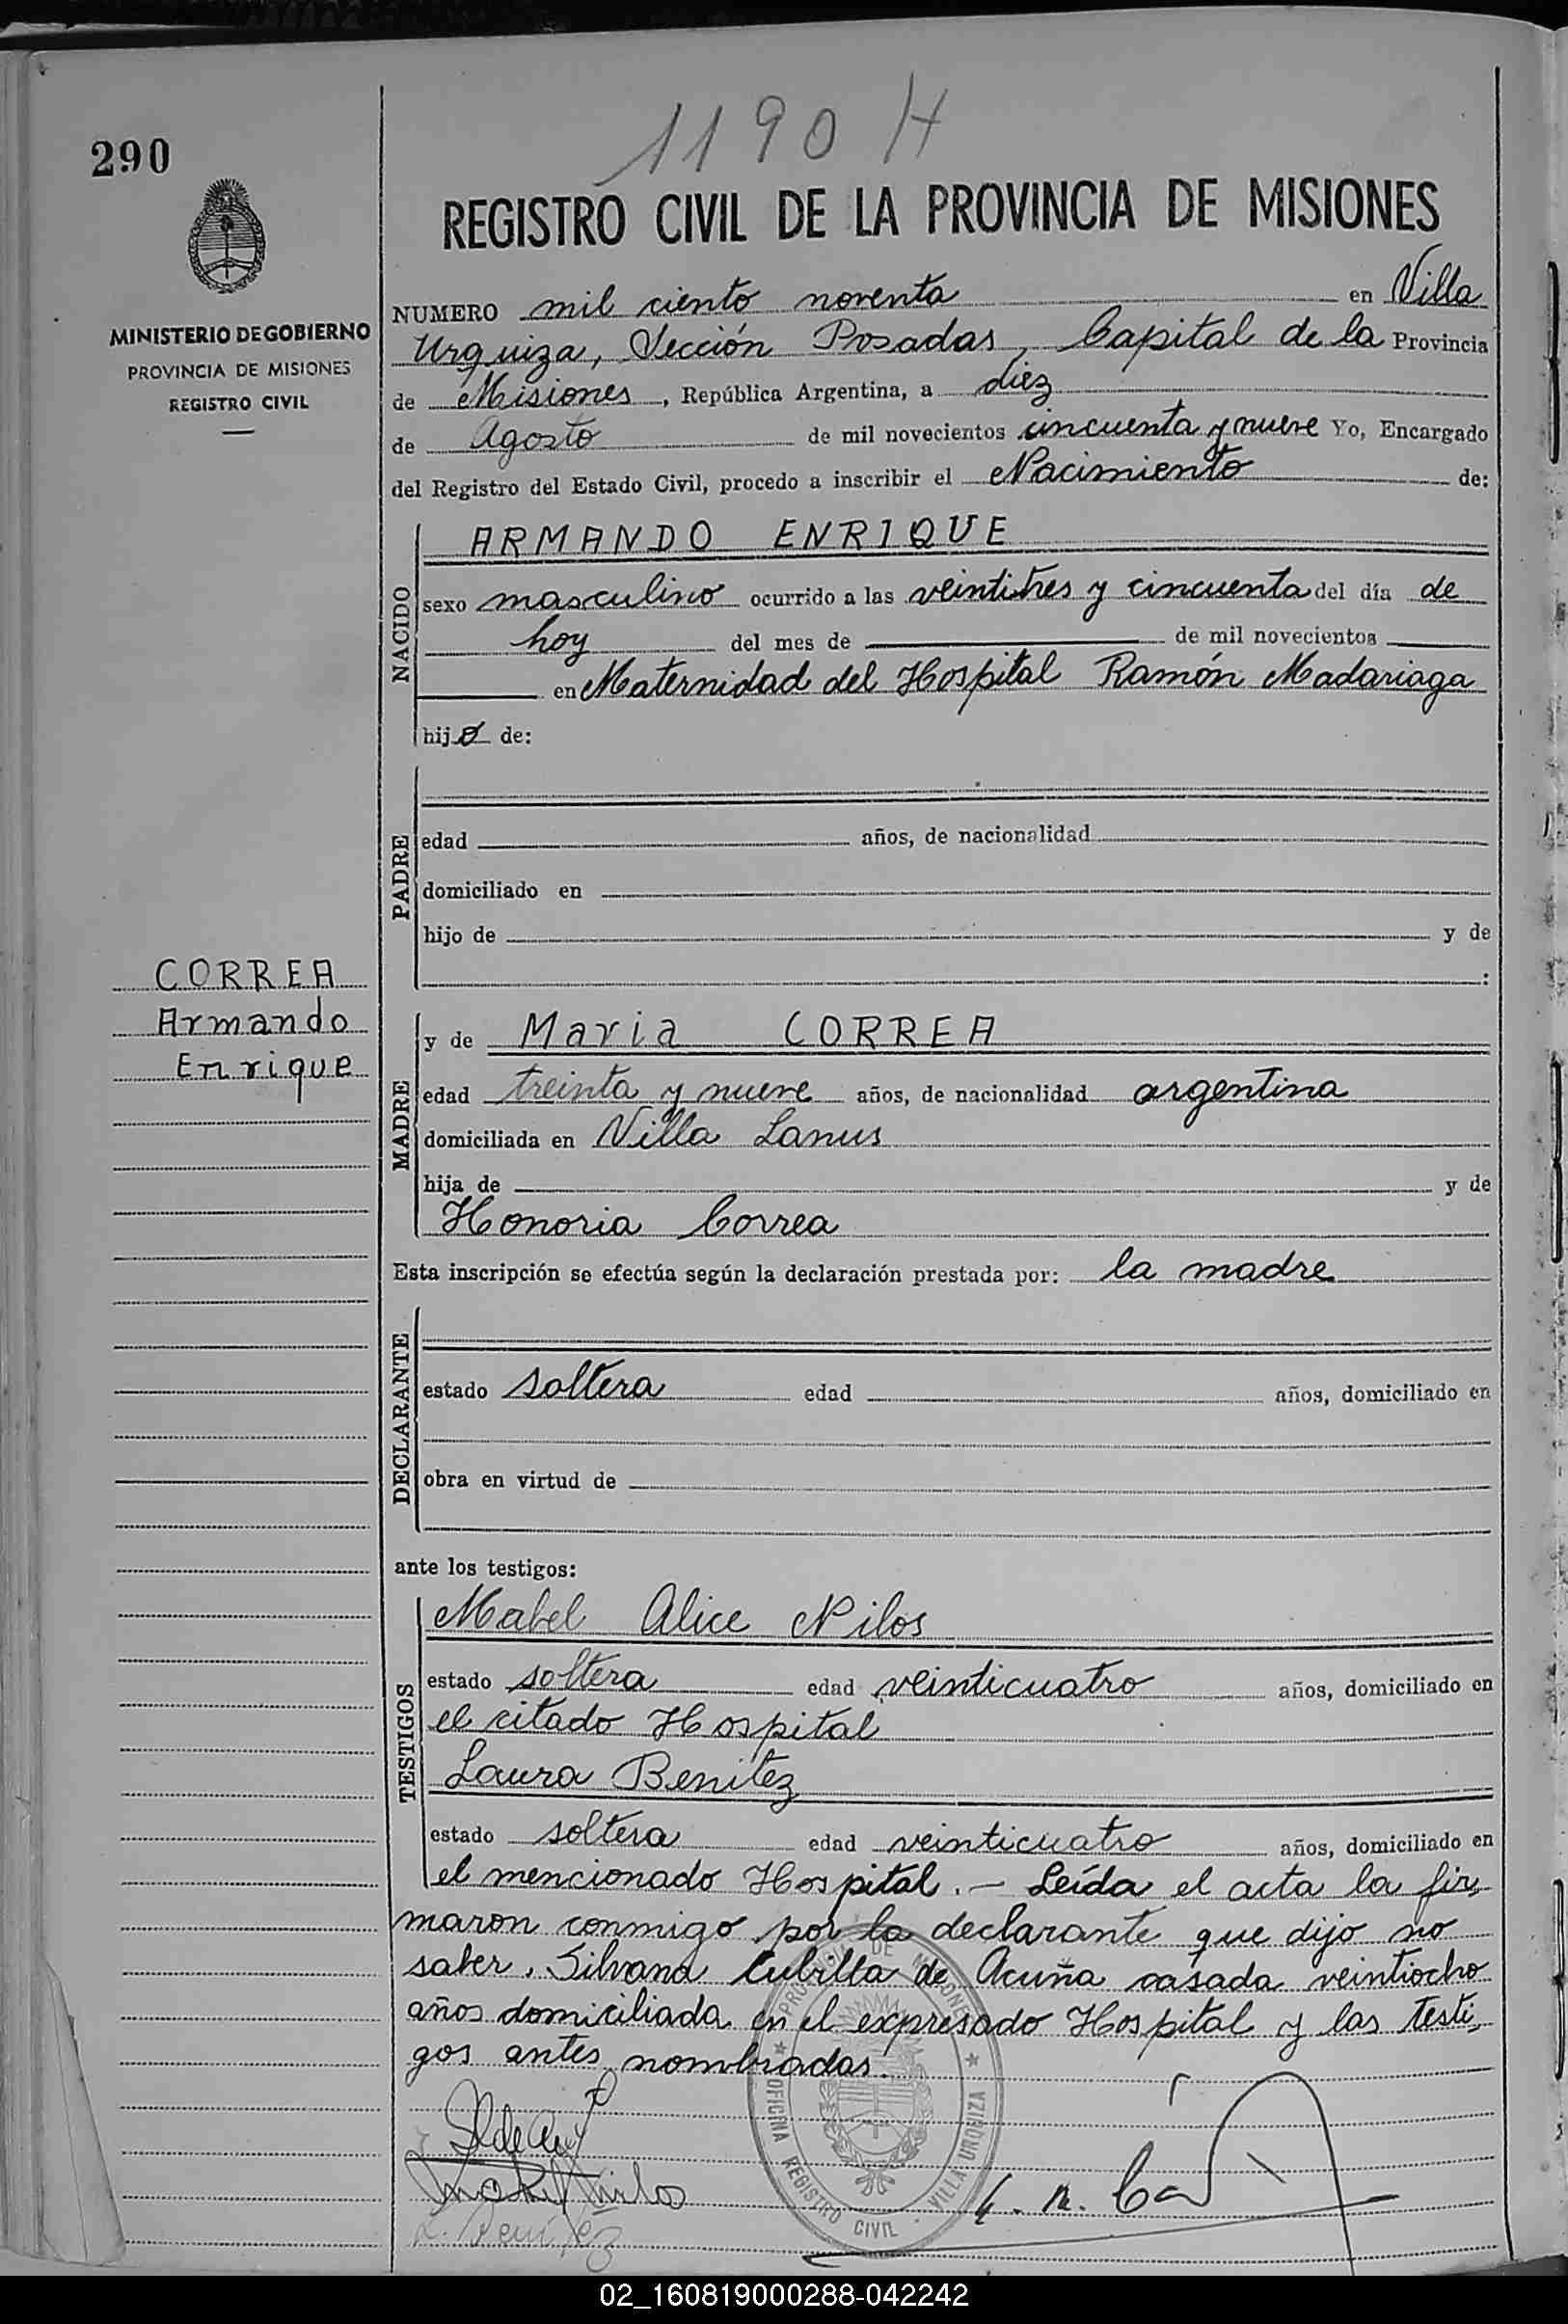 1190 H
290
REGISTRO CIVIL DE LA PROVINCIA DE MISIONES
MINISTERIO DE GOBIERNO
PROVINCIA DE MISIONES
REGISTRO CIVIL
NUMERO mil ciento noventa en Villa
Urquiza, Sección Posadas, Capital de la Provincia
de Misiones, República Argentina, a diez
de Agosto de mil novecientos cincuenta y nueve Yo, Encargado
del Registro del Estado Civil, procedo a inscribir el Nacimiento de:
NACIDO
ARMANDO ENRIQUE
sexo masculino ocurrido a las veintitres y cincuenta del día de
hoy del mes de de mil novecientos
en Maternidad del Hospital Ramón Madariaga
hijo de:
PADRE
edad años, de nacionalidad
domiciliado en
hijo de y de
:
CORREA
Armando
Enrique
MADRE
y de Maria CORREA
edad treinta y nueve años, de nacionalidad argentina
domiciliada en Villa Lanus
hija de y de
Honoria Correa
Esta inscripción se efectúa según la declaración prestada por: la madre
DECLARANTE
estado soltera edad años, domiciliado en
obra en virtud de
ante los testigos:
TESTIGOS
Mabel Alice Nilos
estado soltera edad veinticuatro años, domiciliado en
el citado Hospital
Laura Benitez
estado soltera edad veinticuatro años, domiciliado en
el mencionado Hospital.- Leída el acta la fir-
maron conmigo por la declarante que dijo no
saber, Silvana Cubilla de Acuña casada veintiocho
años domiciliada en el expresado Hospital y las testi-
gos antes nombradas.
PROVINCIA DE MISIONES
OFICINA REGISTRO CIVIL - VILLA URQUIZA
L. Benitez
02_160819000288-042242